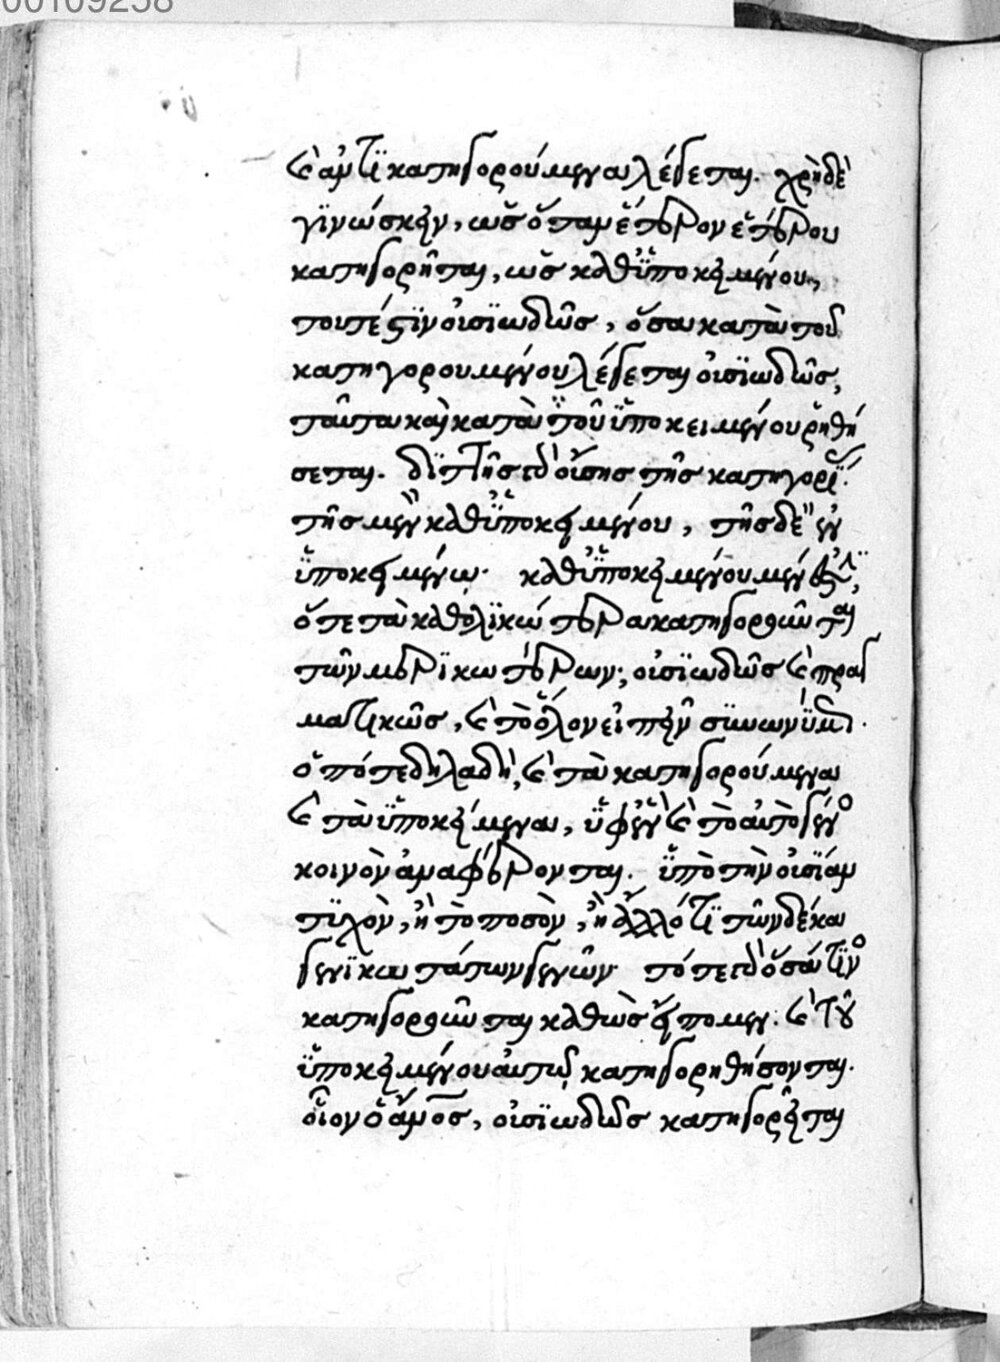 00109258
καὶ ἀντικατηγορούμενα λέγεται. χρὴ δὲ
γϊνώσκειν, ὡς ὅταν ἕτερον ἑτέρου
κατηγορῆται, ὡς καθ' ϋποκειμένου,
τουτέστϊν οὐσϊωδῶς, ὅσα κατὰ τοῦ
κατηγορουμένου λέγεται οὐσϊωδῶς,
ταῦτα καὶ κατὰ τοῦ ϋποκειμένου ῥηθή
σεται. διττῆς δ' οὔσης τῆς κατηγορίας
τῆς μὲν καθ' ϋποκειμένου, τῆς δὲ ἐν
ϋποκειμένω. καθ' ϋποκειμένου μέν
ὅτε τὰ καθολϊκώτερα κατηγορῶνται
τῶν μερϊκωτέρων, οὐσϊωδῶς καὶ πραγ
ματικῶς, καὶ τὸ ὅλον εἰπεῖν συνωνύμως.
ὁπότε δηλαδὴ, καὶ τὰ κατηγορούμενα
καὶ τὰ ϋποκείμενα, ϋφ' ἓν καὶ τὸ αὐτὸ γένος
κοινὸν ἀναφέρονται. ϋπὸ τὴν οὐσϊάν
τϋχὸν, ἢ τὸ ποσὸν, ἢ ἄλλό τϊ τῶν δέκα
γενϊκωτάτων γενῶν. τότε δ' ὅσά τϊνος
κατηγορῶνται καθὼς εἴπομεν. καὶ τοῦ
ϋποκειμένου αὐτῶ κατηγορηθήσονται.
οἷον ὁ ἄνος, οὐσϊωδῶς κατηγορεῖται